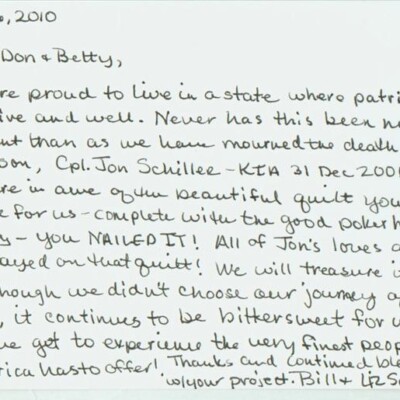 , 2010
Don & Betty,
re proud to live in a state where patri
ive and well. Never has this been n
nt than as we have mourned the death
son, Cpl. Jon Schillee - KIA 31 Dec 200
re in awe of the beautiful quilt you
e for us - complete with the good poker h
s - you NAILED IT! All of Jon's loves a
ayed on that quilt! We will treasure i
hough we didn't choose our journey a
, it continues to be bittersweet for u
ve get to experience the very finest peop
rica has to offer! Thanks and continued ble
w/your project. Bill & Liz S